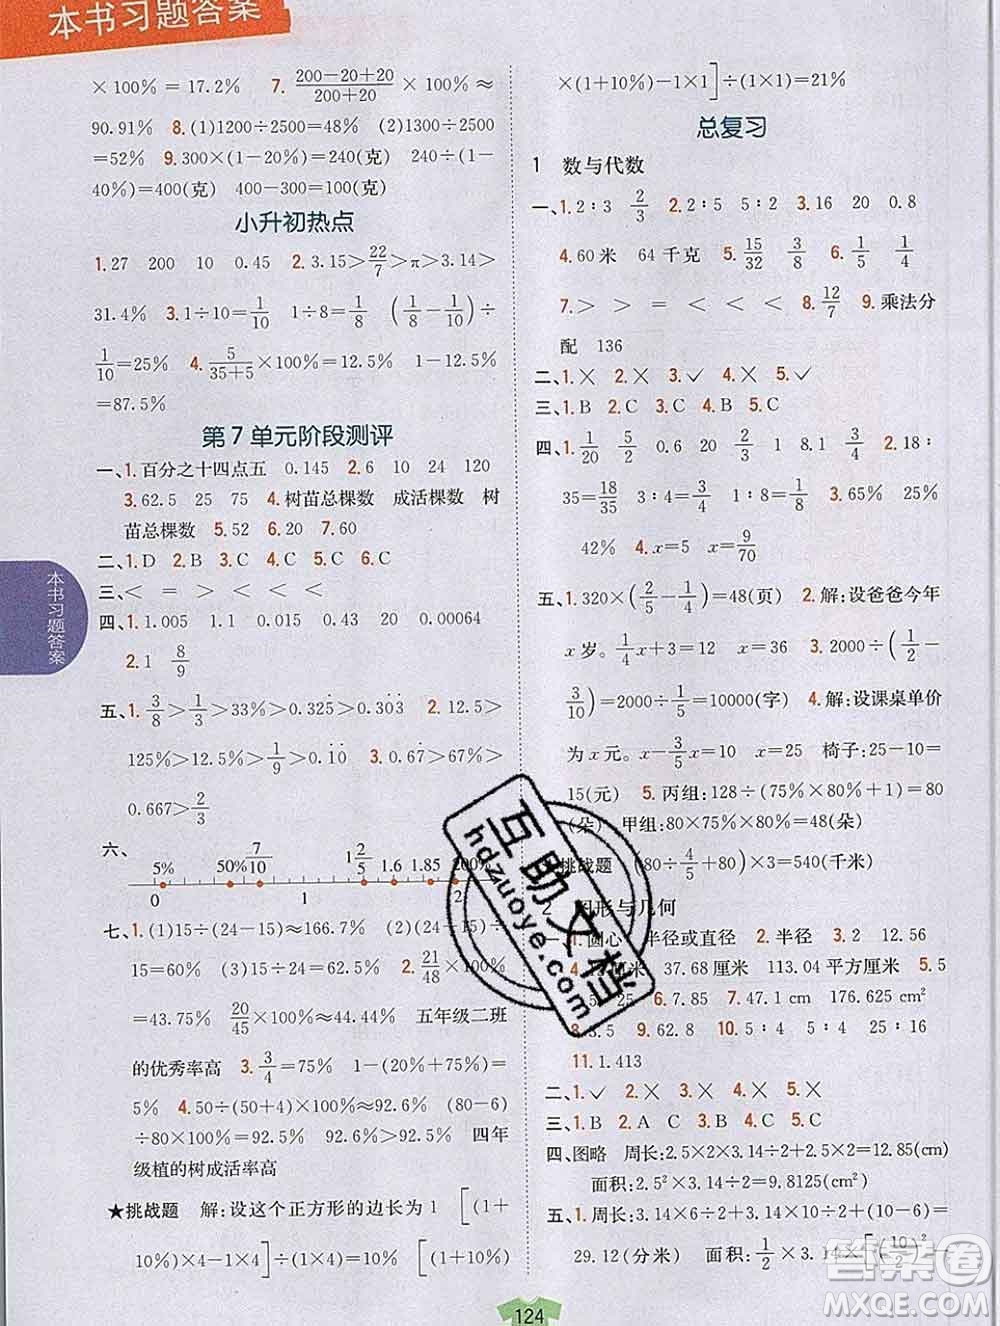 本书习题答案
×100%=17.2%　7. (200-20+20)/(200+20)×100%≈
90.91%　8.(1)1200÷2500=48%　(2)1300÷2500
=52%　9.300×(1-20%)=240(克)　240÷(1-
40%)=400(克)　400-300=100(克)
小升初热点
1.27　200　10　0.45　2.3.15>22/7>π>3.14>
31.4%　3.1÷10=1/10　1÷8=1/8　(1/8-1/10)÷
1/10=25%　4. 5/(35+5)×100%=12.5%　1-12.5%
=87.5%
第7单元阶段测评
一、1.百分之十四点五　0.145　2.6　10　24　120
3.62.5　25　75　4.树苗总棵数　成活棵数　树
苗总棵数　5.52　6.20　7.60
二、1.D　2.B　3.C　4.B　5.C　6.C
三、<　=　>　<　<　<
四、1.1.005　1.1　0.015　0.43　20　0.00064
2.1　8/9
五、1. 3/8>1/3>33%>0.325̇>0.3̇03̇　2.12.5>
125%>12.5%>1/9>0.1̇10̇　3.2>67%>0.667̇>
0.667>2/3
六、
5%　50%　7/10　1 2/5　1.6　1.85　200%
0　1　2
七、1.(1)15÷(24-15)≈166.7%　(2)(24-15)÷
15=60%　(3)15÷24=62.5%　2. 21/48×100%
=43.75%　20/45×100%≈44.44%　五年级二班
的优秀率高　3. 3/4=75%　1-75%-20%=
5%　4.50÷(50+4)×100%≈92.6%　(80-6)
÷80×100%=92.5%　92.6%>92.5%　四年
级植的树成活率高
★挑战题　解:设这个正方形的边长为1　[(1+
10%)×4-1×4]÷(1×4)=10%　[(1+10%)
×(1+10%)-1×1]÷(1×1)=21%
总复习
1　数与代数
一、1.2∶3　2/3　2.2∶5　5∶2　3.16　20　0.8
4.60米　64千克　5. 15/32　3/8　6. 1/5　1/4
7.>　>　=　<　<　<　8. 12/7　9.乘法分
配　136
二、1.×　2.×　3.✓　4.×　5.✓
三、1.B　2.C　3.C　4.B　5.C
四、1. 1/20　5/2　0.6　20　1　8.1　3/4　2.18∶
35=18/35　3∶4=3/4　1∶8=1/8　3.65%　25%
42%　4.x=5　x=9/70
五、1.320×(2/5-1/4)=48(页)　2.解:设爸爸今年
x岁。1/4x+3=12　x=36　3.2000÷(1/2-
3/10)=2000÷1/5=10000(字)　4.解:设课桌单价
为x元。x-3/5x=10　x=25　椅子:25-10=
15(元)　5.丙组:128÷(75%×80%+1)=80
(朵)　甲组:80×75%×80%=48(朵)
挑战题　(80÷4/5+80)×3=540(千米)
图形与几何
一、1.圆心　半径或直径　2.半径　3.2　12.56
4.12厘米　37.68厘米　113.04平方厘米　5.5
25　6.7.85　7.47.1 cm　176.625 cm²
8.3.5　9.62.8　10.5∶4　5∶4　25∶16
11.1.413
二、1.✓　2.×　3.×　4.×　5.×
三、1.B　2.A　C　3.C　4.B　5.C
四、图略　周长:2.5×2×3.14÷2+2.5×2=12.85(cm)
面积:2.5²×3.14÷2=9.8125(cm²)
五、1.周长:3.14×6÷2+3.14×10÷2+(10-6)=
29.12(分米)　面积:1/2×3.14×[(10/2)²-
本书习题答案
124
互助文档
hdzuoye.com
答案圈
MXQE.COM